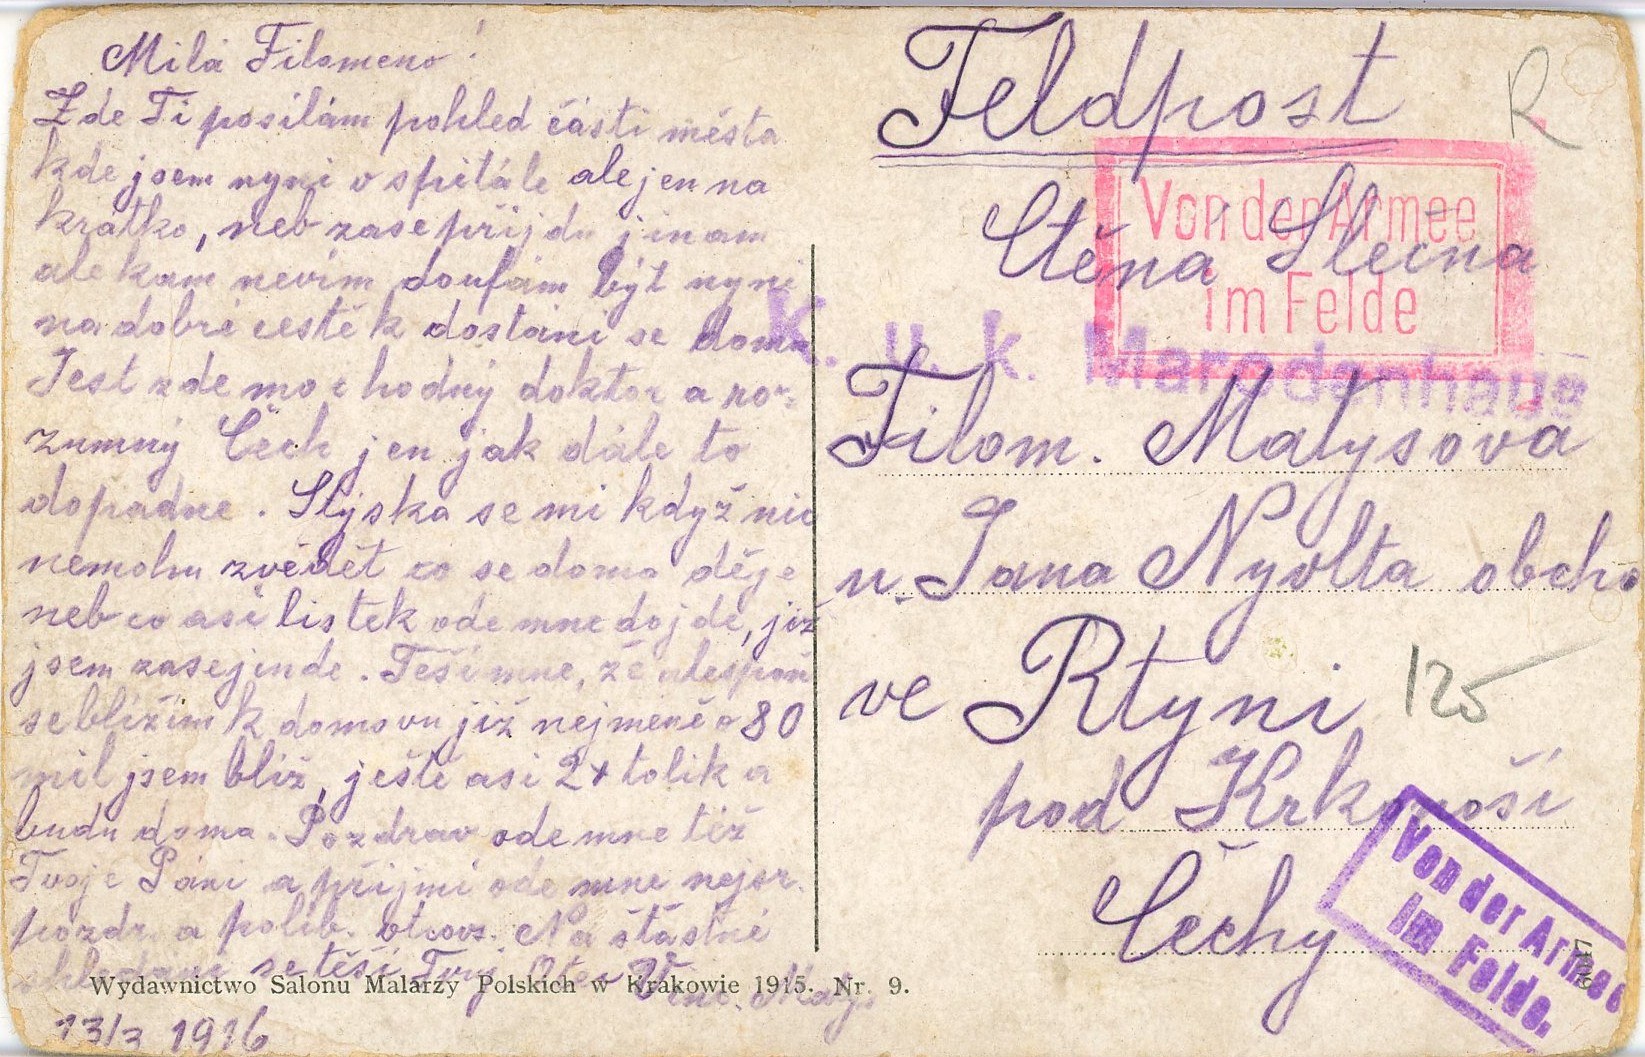 Milá Filomeno!
Zde Ti posílám pohled části města
kde jsem nyni v spitále ale jen na
krátko, neb zase přijdu jinam
ale kam nevím doufám být nyni
na dobré cestě k dostání se domu
Jest zde moc hodný doktor a ro-
zumný Čech jen jak dále to
dopadne. Stýska se mi když nic
nemohu zvědět co se doma děje
neb co asi lístek ode mne dojde, již
jsem zase jinde. Těší mne, že alespoň
se blížím k domovu již nejmeně o 80
mil jsem blíž, ještě asi 2x tolik a
budu doma. Pozdrav ode mne též
Tvoje Páni a přijmi ode mne nejsr.
pozdr. a polib. otcovs. Na štastné
se těší Tvuj Otec Vinc. Matys
13/3 1916
Wydawnictwo Salonu Malarzy Polskich w Krakowie 1915. Nr 9.
Feldpost
R
Von der Armee
im Felde
Ctěná Slečna
K. u. k. Marodenhaus
Filom. Matysova
u Jana Nyvlta obcho
ve Rtyni
125
pod Krkonoší
Čechy
Von der Armee
im Felde.